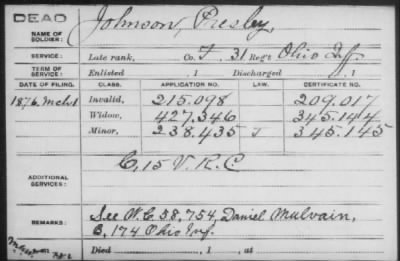 DEAD
NAME OF SOLDIER: Johnson, Presley
SERVICE: Late rank, Co. F 31 Reg't Ohio Inf.
TERM OF SERVICE: Enlisted , 1 Discharged , 1
DATE OF FILING. CLASS. APPLICATION NO. LAW. CERTIFICATE NO.
1876, Mch 1 Invalid, 215.098 209.017
Widow, 427.346 345.144
Minor, 238.435 345.145
C, 15 V.R.C.
ADDITIONAL SERVICES:
REMARKS: See W.C. 58,754, Daniel Mulvain,
B, 174 Ohio Inf.
Died , 1 , at